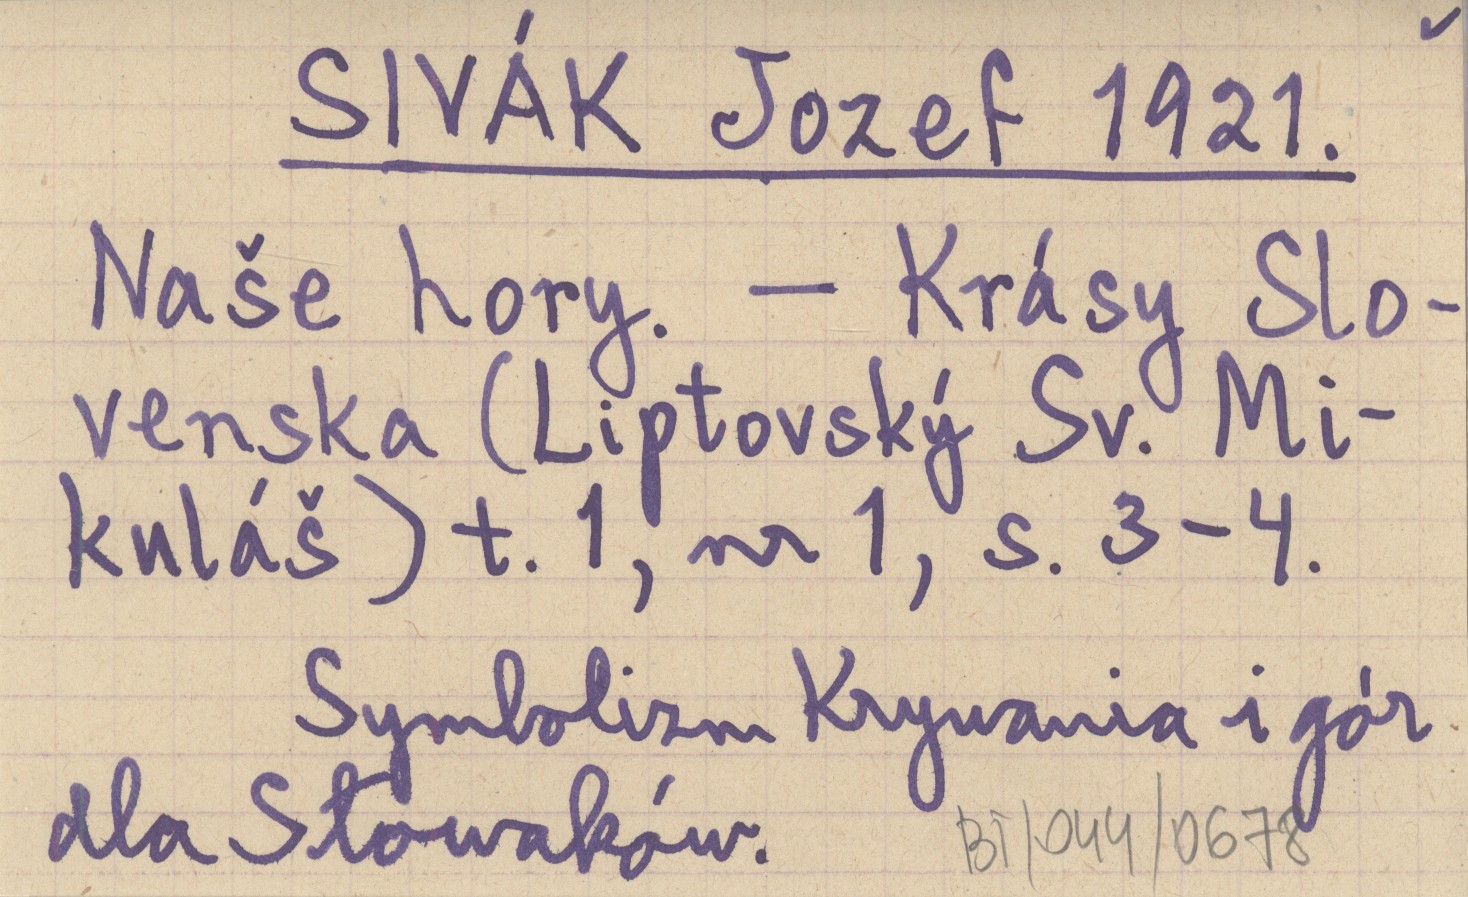 SIVÁK Jozef 1921.
Naše hory. — Krásy Slo-
venska (Liptovský Sv. Mi-
kuláš) t. 1, nr 1, s. 3-4.
Symbolizm Krywania i gór
dla Słowaków.
BT/044/0678